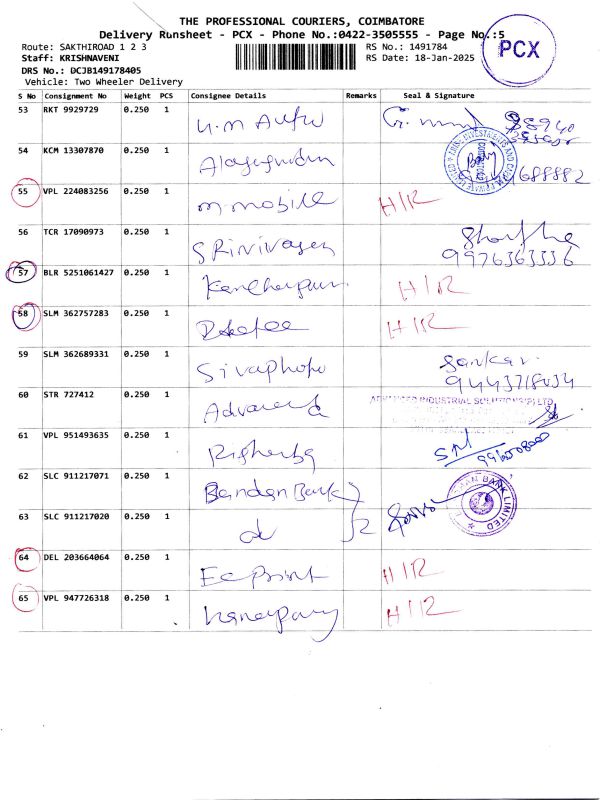 THE PROFESSIONAL COURIERS, COIMBATORE
Delivery Runsheet - PCX - Phone No.:0422-3505555 - Page No.:5
PCX
Route: SAKTHIROAD 1 2 3
RS No.: 1491784
Staff: KRISHNAVENI
RS Date: 18-Jan-2025
DRS No.: DCJB149178405
Vehicle: Two Wheeler Delivery
S No Consignment No Weight PCS Consignee Details Remarks Seal & Signature
53 RKT 9929729 0.250 1
54 KCM 13307870 0.250 1
55 VPL 224083256 0.250 1 m mobile H/R
56 TCR 17090973 0.250 1 SRinivasan
9976363336
57 BLR 5251061427 0.250 1 H/R
58 SLM 362757283 0.250 1 H/R
59 SLM 362689331 0.250 1 Sankar
9443718034
60 STR 727412 0.250 1 ADVANCED INDUSTRIAL SOLUTIONS(P) LTD
61 VPL 951493635 0.250 1
62 SLC 911217071 0.250 1 Bandan Bank BANK LIMITED
63 SLC 911217020 0.250 1 do 2
64 DEL 203664064 0.250 1 Ec Print H/R
65 VPL 947726318 0.250 1 H/R